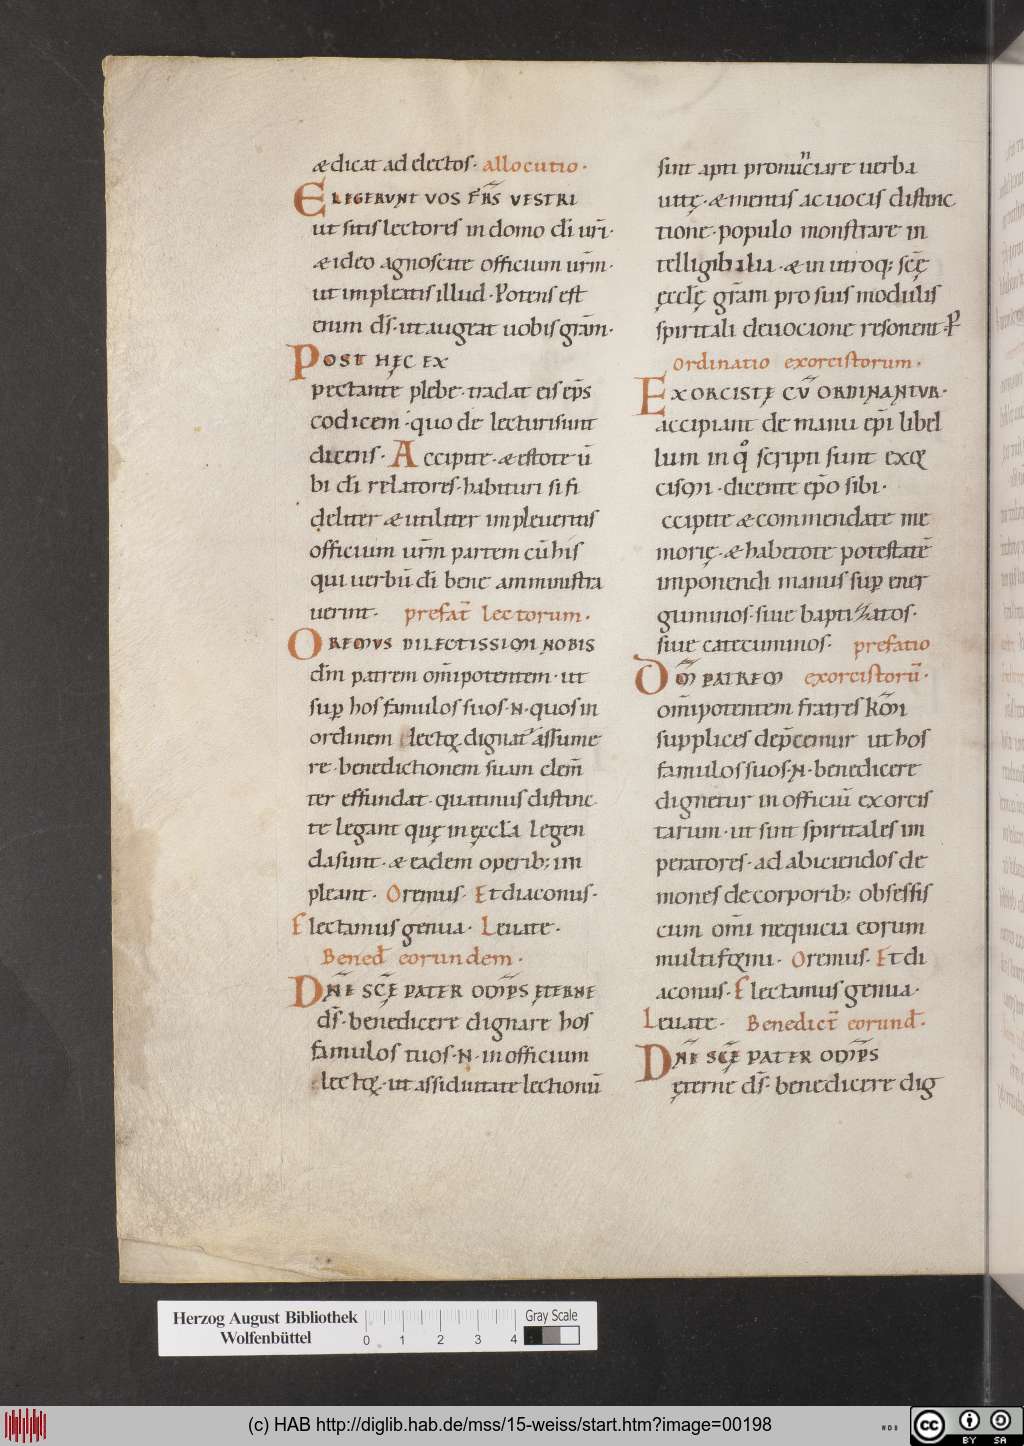 ædicat ad electos· allocutio·
ELEGERVNT VOS FR̄S VESTRI
ut sitis lectores in domo di uri·
æ ideo agnoscite officium urm̄·
ut impleatis illud· Potens est
enim ds̄· ut augeat uobis grām·
POST HĘC EX
pectante plebe· tradat eis ep̄s
codicem· quo de lecturi sunt
dicens· Accipite· æ estote ū
bi dī relatores· habituri si fi
deliter æ utiliter impleueritis
officium urm̄ partem cū his
qui uerbū dī bene amministra
uerint· prefat̄ lectorum·
OREMVS DILECTISSIMI NOBIS
dm̄ patrem om̄ipotentem· ut
sup̄ hos famulos suos ·N· quos in
ordinem lectoꝝ dignat᷑ assume
re· benedictionem suam clem̄
ter effundat· quatinus distinc
te legant quę in ęccl̄a legen
da sunt· æ eadem operib; im
pleant· Oremus· Et diaconus·
Flectamus genua· Leuate·
Bened̄ eorundem·
DN̄E SC̄E PATER OM̄PS ĘTERNE
ds̄· benedicere dignare hos
famulos tuos ·N· in officium
lectoꝝ· ut assiduitate lectionū
sint apti pronunciare uerba
uitę· æ mentis ac uocis distinc
tione· populo monstrare in
telligibilia· æ in utroq; sc̄ę
ęccl̄ę grām pro suis modulis
spiritali deuocione resonent· P
Ordinatio exorcistorum·
EXORCISTĘ CV̄ ORDINANTVR·
accipiant de manu ep̄i libel
lum in qͦ scripti sunt exor
cismi· dicente ep̄o sibi·
ccipite æ commendate me
morię· æ habetote potestatē
imponendi manus sup̄ ener
guminos· siue baptizatos·
siue catecuminos· prefatio
DM̄ PATREM exorcistorū·
om̄ipotentem fratres km̄i
supplices dep̄cemur ut hos
famulos suos ·N· benedicere
dignetur in officiū exorcis
tarum· ut sint spiritales im
peratores· ad abiciendos de
mones de corporib; obsessis
cum om̄i nequicia eorum
multiformi· Oremus· Et di
aconus· Flectamus genua·
Leuate· Benedict̄ eorund̄·
DN̄E SC̄E PATER OM̄PS
ęterne ds̄· benedicere dig
Herzog August Bibliothek
Wolfenbüttel
0 1 2 3 4
Gray Scale
(c) HAB http://diglib.hab.de/mss/15-weiss/start.htm?image=00198
cc BY SA